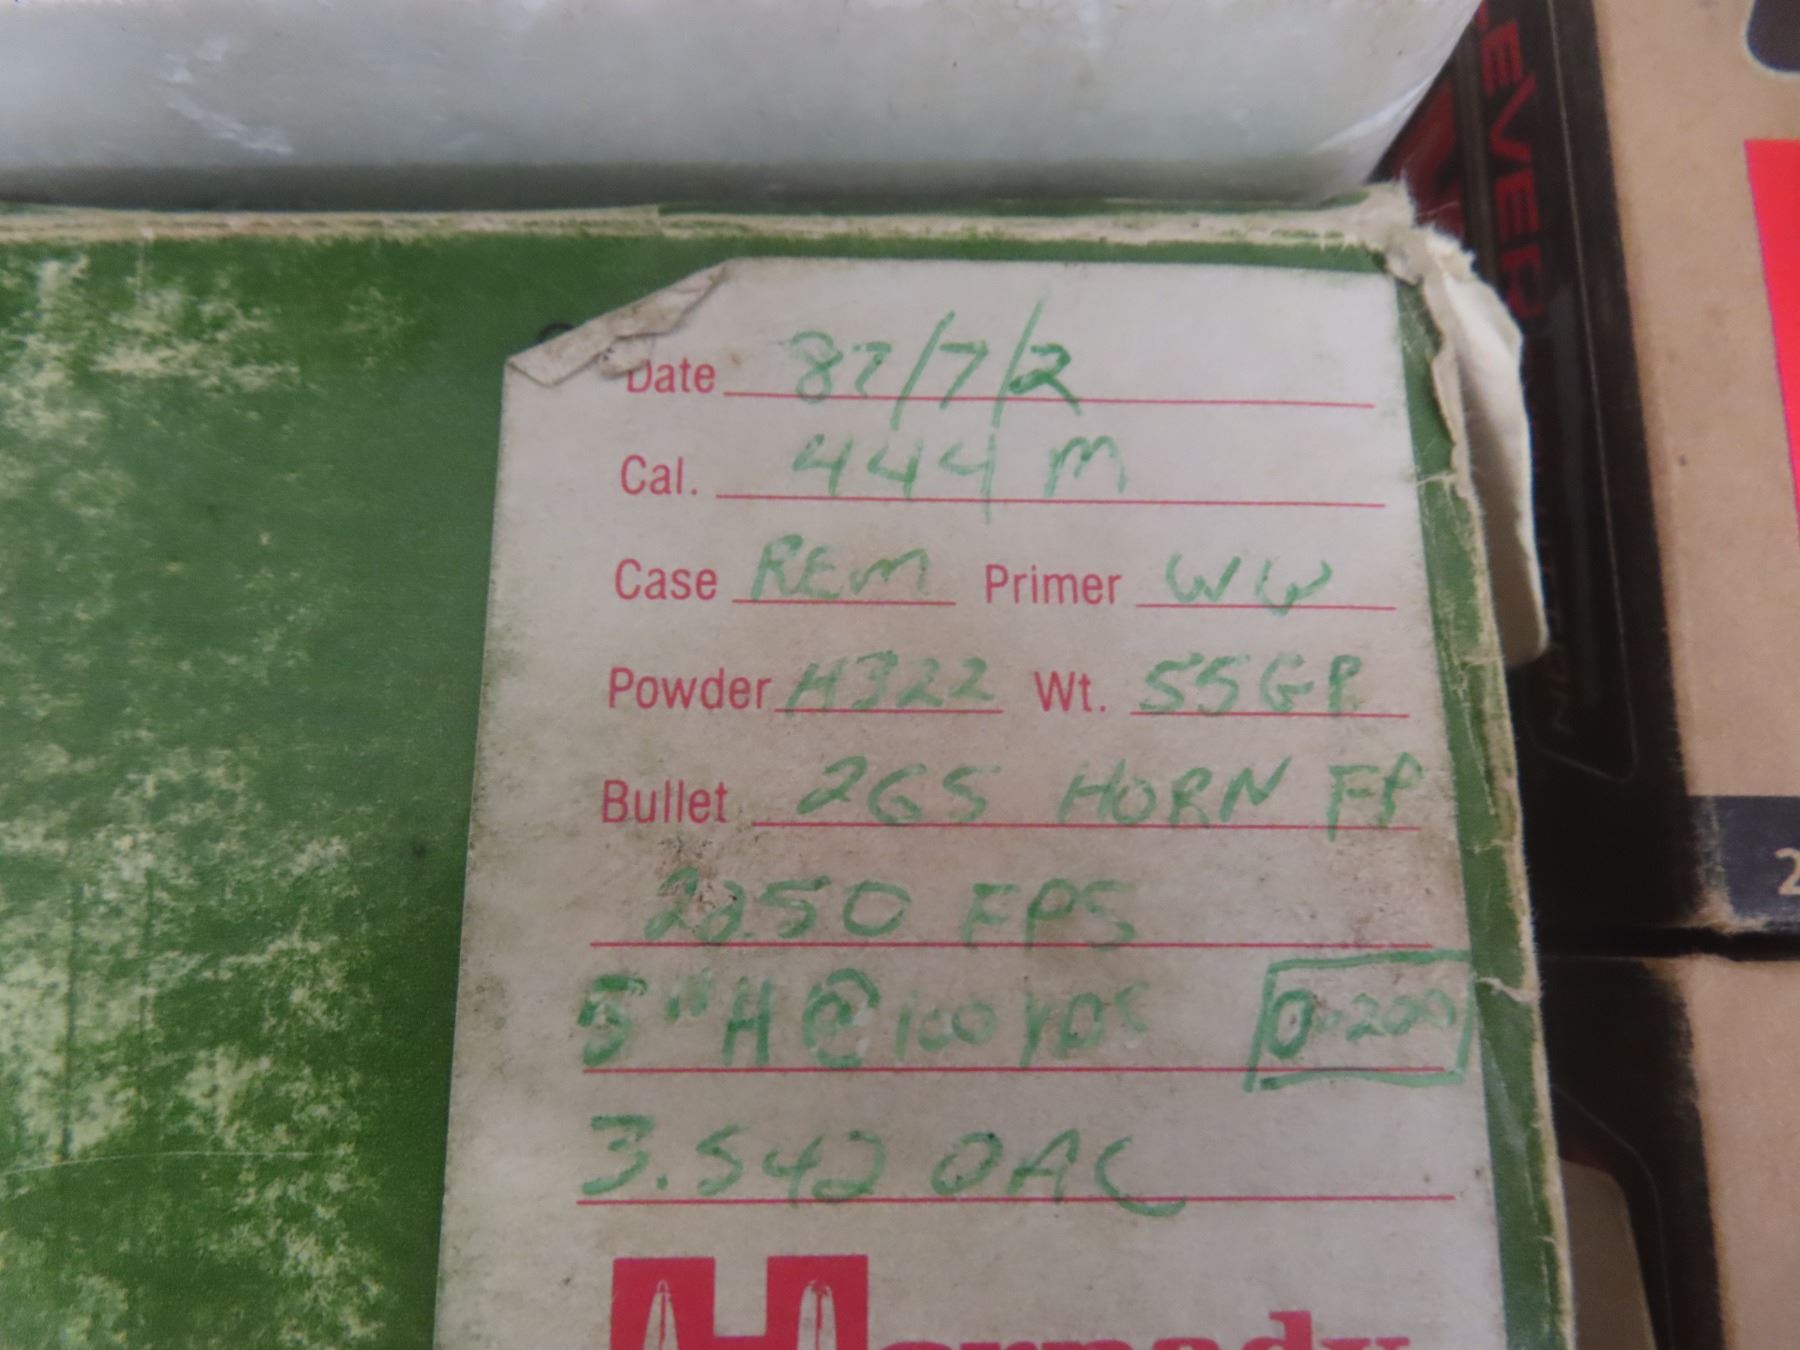 Date 87/7/2
Cal. 444 M
Case REM Primer WW
Powder H322 Wt. 55GR
Bullet 265 HORN FP
2250 FPS
5" H @ 100 YDS 0-200
3.542 OAL
Hornady
LEVER
2